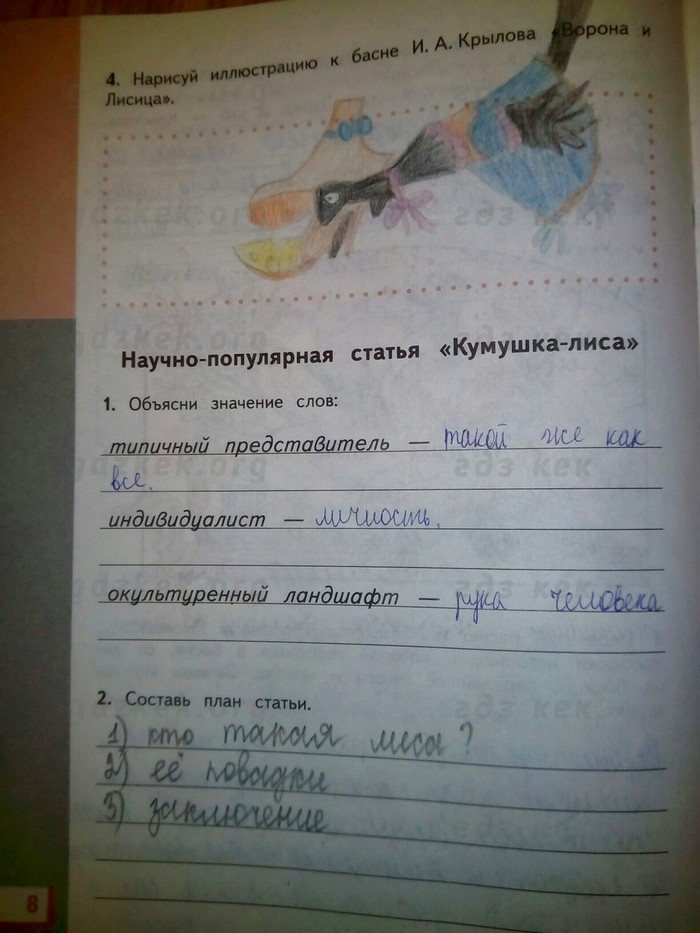 4. Нарисуй иллюстрацию к басне И. А. Крылова «Ворона и
Лисица».
gdzkek.org
гдз кек
gdzkek.org
Научно-популярная статья «Кумушка-лиса»
1. Объясни значение слов:
типичный представитель — такой же как
gdzkek.org
гдз кек
все.
индивидуалист — личность.
гдз кек
окультуренный ландшафт — рука человека
2. Составь план статьи.
гдз кек
1) кто такая лиса?
2) её повадки
3) заключение
8